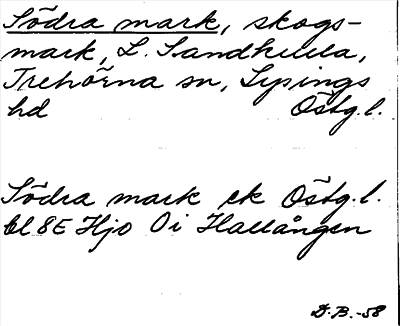 Södra mark, skogs-
mark, L. Sandkulla,
Trehörna sn, Ydings
hd Östg.l.
Södra mark ek Östg.l.
bl 8E Hjo 0i Hallången
D.B.-58